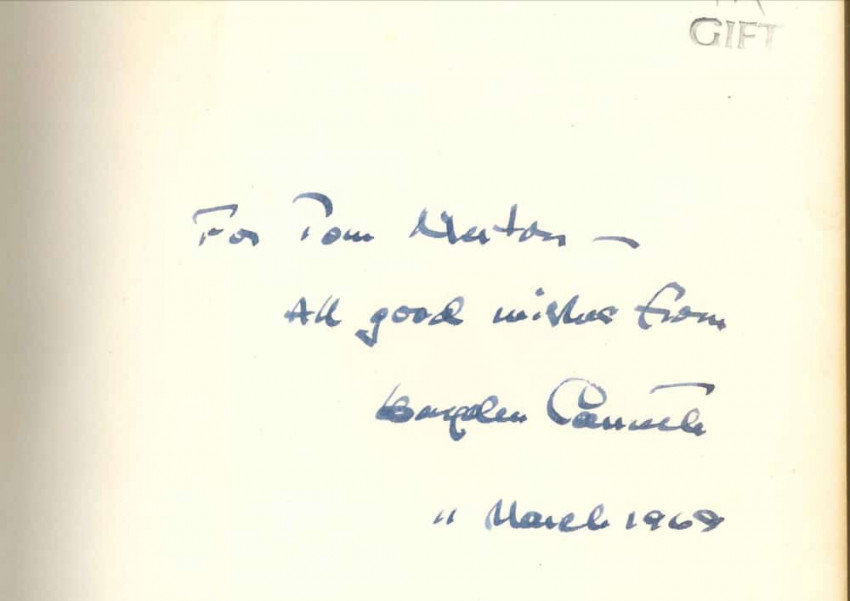 GIFT
For Tom Merton —
All good wishes from
Hayden Carruth
11 March 1968